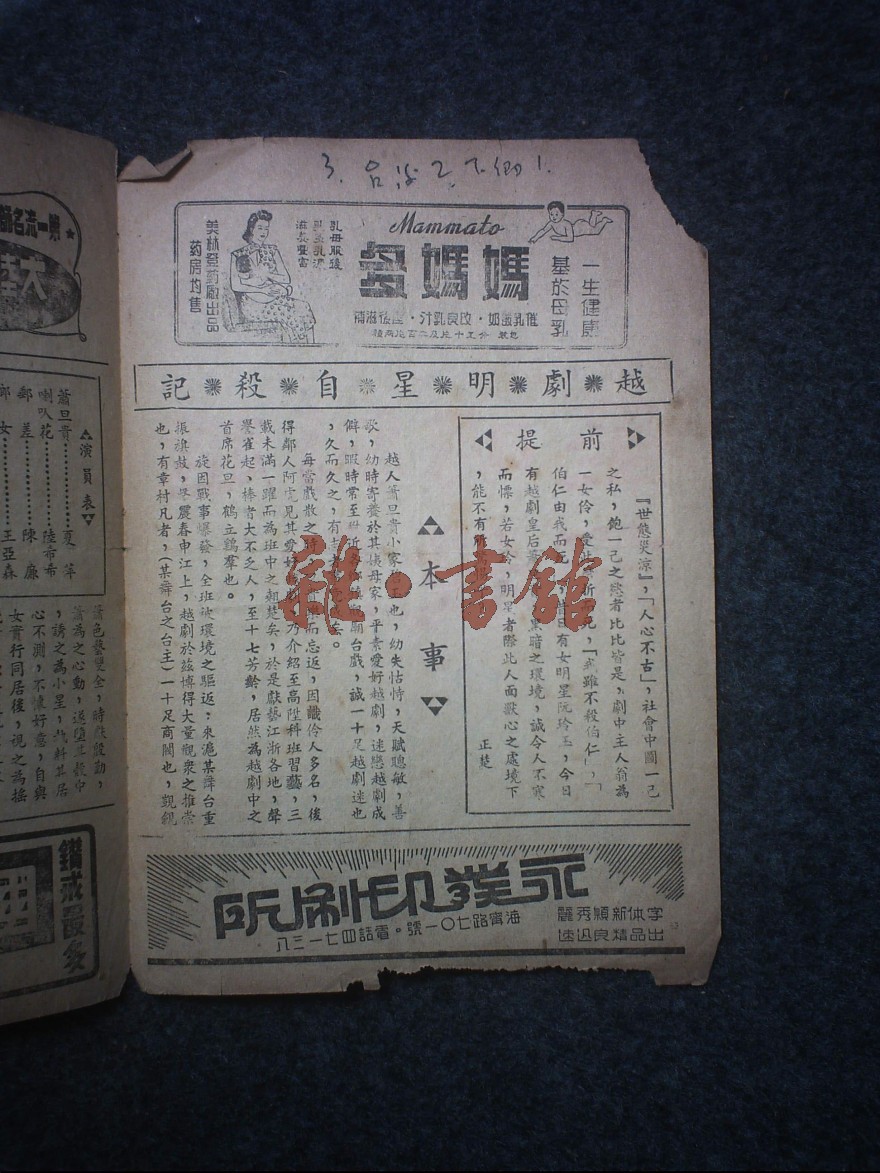 3.
Mammato
媽媽多
一生健康
基於母乳
催乳靈如・改良乳汁・產後滋補
乳母服後
美林登药廠出品
药房均售
越劇明星自殺記
前提
『世態炎涼』,「人心不古」,社會中圖一己
之私,飽一己之慾者比比皆是,劇中主人翁為
一女伶,愛
伯仁由我而死,昔日有女明星阮玲玉,今日
有越劇皇后筱
黑暗之環境,誠令人不寒
而慄,若女伶,明星者際此人面獸心之處境下
,能不有所
正楚
本事
越人蕭旦貴小家
也,幼失怙恃,天賦聰敏,善
歌,幼時寄養於其姨母家,平素愛好越劇,迷戀越劇成
僻,暇時常至附近各鄉鎮觀廟台戲,誠一十足越劇迷也
,久而久之,有
每當戲散之時
而忘返,因識伶人多名,後
得鄰人阿寬見其愛好
乃介紹至高陞科班習藝,三
載未滿一躍而為班中之翹楚矣,於是獻藝江浙各地,聲
譽雀起,捧者大不乏人,至十七芳齡,居然為越劇中之
首席花旦,鶴立鷄羣也。
旋因戰事爆發,全班被環境之驅返;來滬某舞台重
振旗鼓,譽震春申江上,越劇於茲博得大量觀衆之推崇
也,有韋村凡者,(某舞台之台主)一十足商閥也,覬覦
永業印刷所
字体新穎秀麗
出品精良迅速
海寧路七〇一號。電話四七一三八
雜・書館
第一流名
大
演員表
蕭旦貴………夏萍
喇叭花………陸希希
郵差………陳廉
鄉女………王亞森
蕭色藝雙全,時獻殷勤,
蕭為之心動,遂墮其彀中
,誘之為小星,
其居
心不測,不懷好意,自與
女實行同居後,視之為搖
鑽戒最多